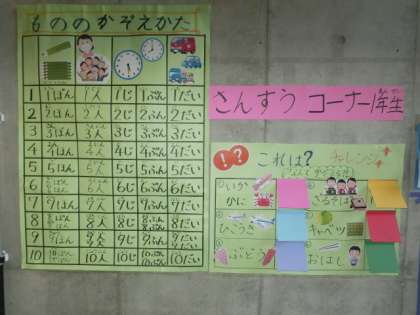 もののかぞえかた
1 1ぽん 1人 1じ 1ぷん 1だい
2 2ほん 2人 2じ 2ふん 2だい
3 3ぼん 3人 3じ 3ぷん 3だい
4 4ほん 4人 4じ 4ふん 4だい
5 5ほん 5人 5じ 5ふん 5だい
6 6ぽん 6人 6じ 6ぷん 6だい
7 7ほん 7人 7じ 7ふん 7だい
8 8人 8じ 8だい
9 9ほん 9人 9じ 9ふん 9だい
10 10人 10じ 10だい
さんすう コーナー 1年生
!? これは? チャレンジ
いか
かに
ざるそば
ひこうき
キャベツ
ぶどう
おはし